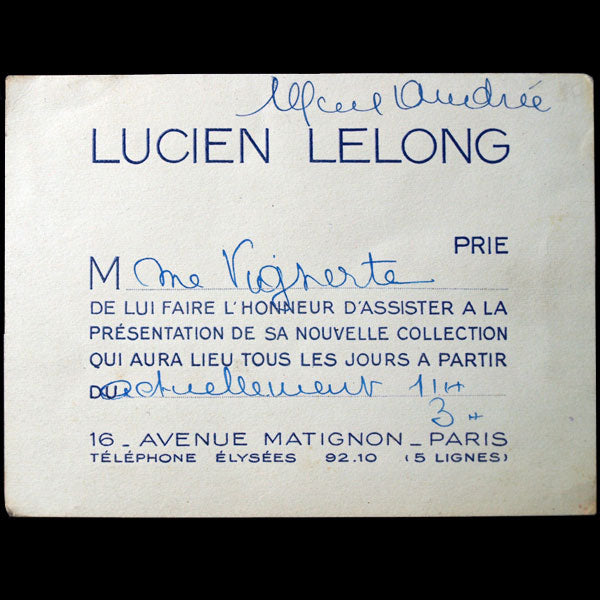 Andrée
LUCIEN LELONG
PRIE
Mme Vignerte
DE LUI FAIRE L'HONNEUR D'ASSISTER A LA
PRÉSENTATION DE SA NOUVELLE COLLECTION
QUI AURA LIEU TOUS LES JOURS A PARTIR
DU actuellement 11H
3H
16 _ AVENUE MATIGNON _ PARIS
TÉLÉPHONE ÉLYSÉES 92.10 (5 LIGNES)